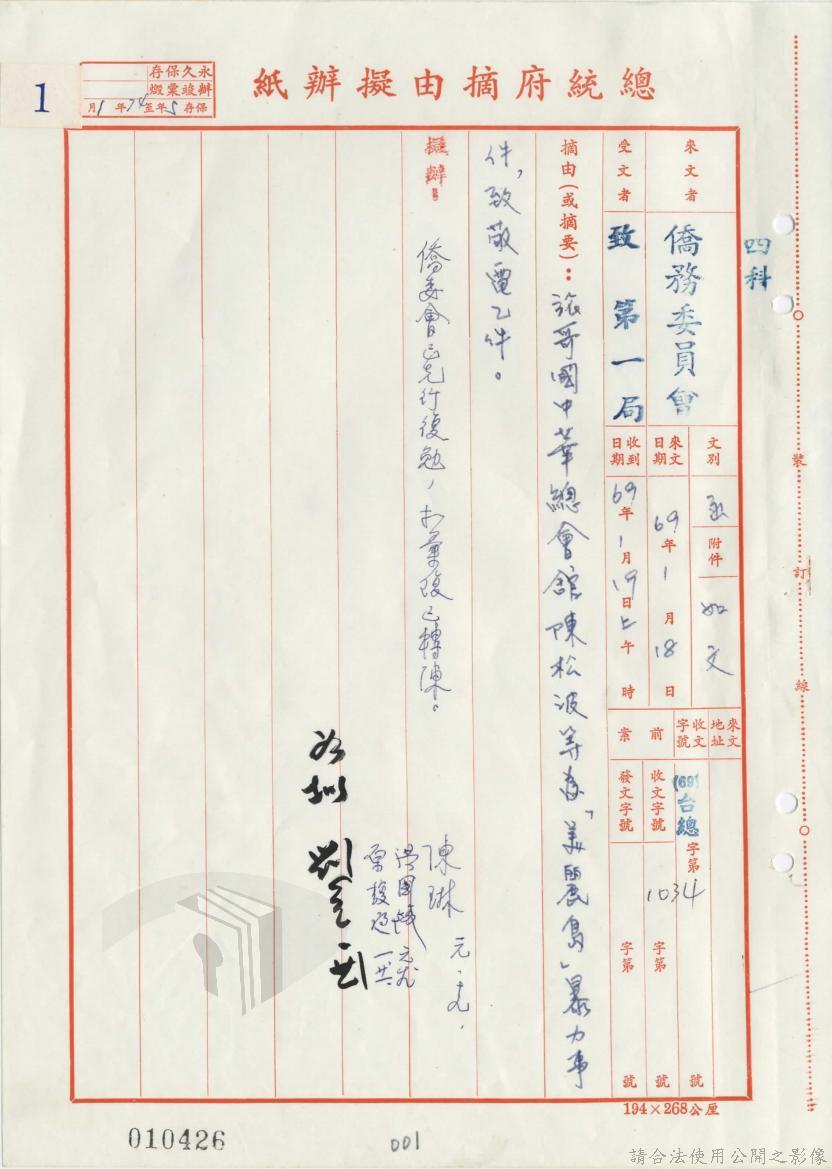 總統府摘由擬辦紙
永久保存
辦竣稟繳
保存5年至74年1月
1
四科
來文者 僑務委員會
受文者 致第一局
文別 函 附件 如文
來文日期 69年1月18日
收到日期 69年1月19日上午 時
來文地址
收文字號 (69)台總字第1034號
前案
收文字號 字第 號
發文字號 字第 號
摘由(或摘要):旅哥國中華總會館陳松波等為「美麗島」暴力事
件,致敬電乙件。
擬辦:
僑委會已先行復勉,擬彙復已轉陳。
陳琳 元.
如擬
裝訂線
194×268公厘
010426
001
請合法使用公開之影像